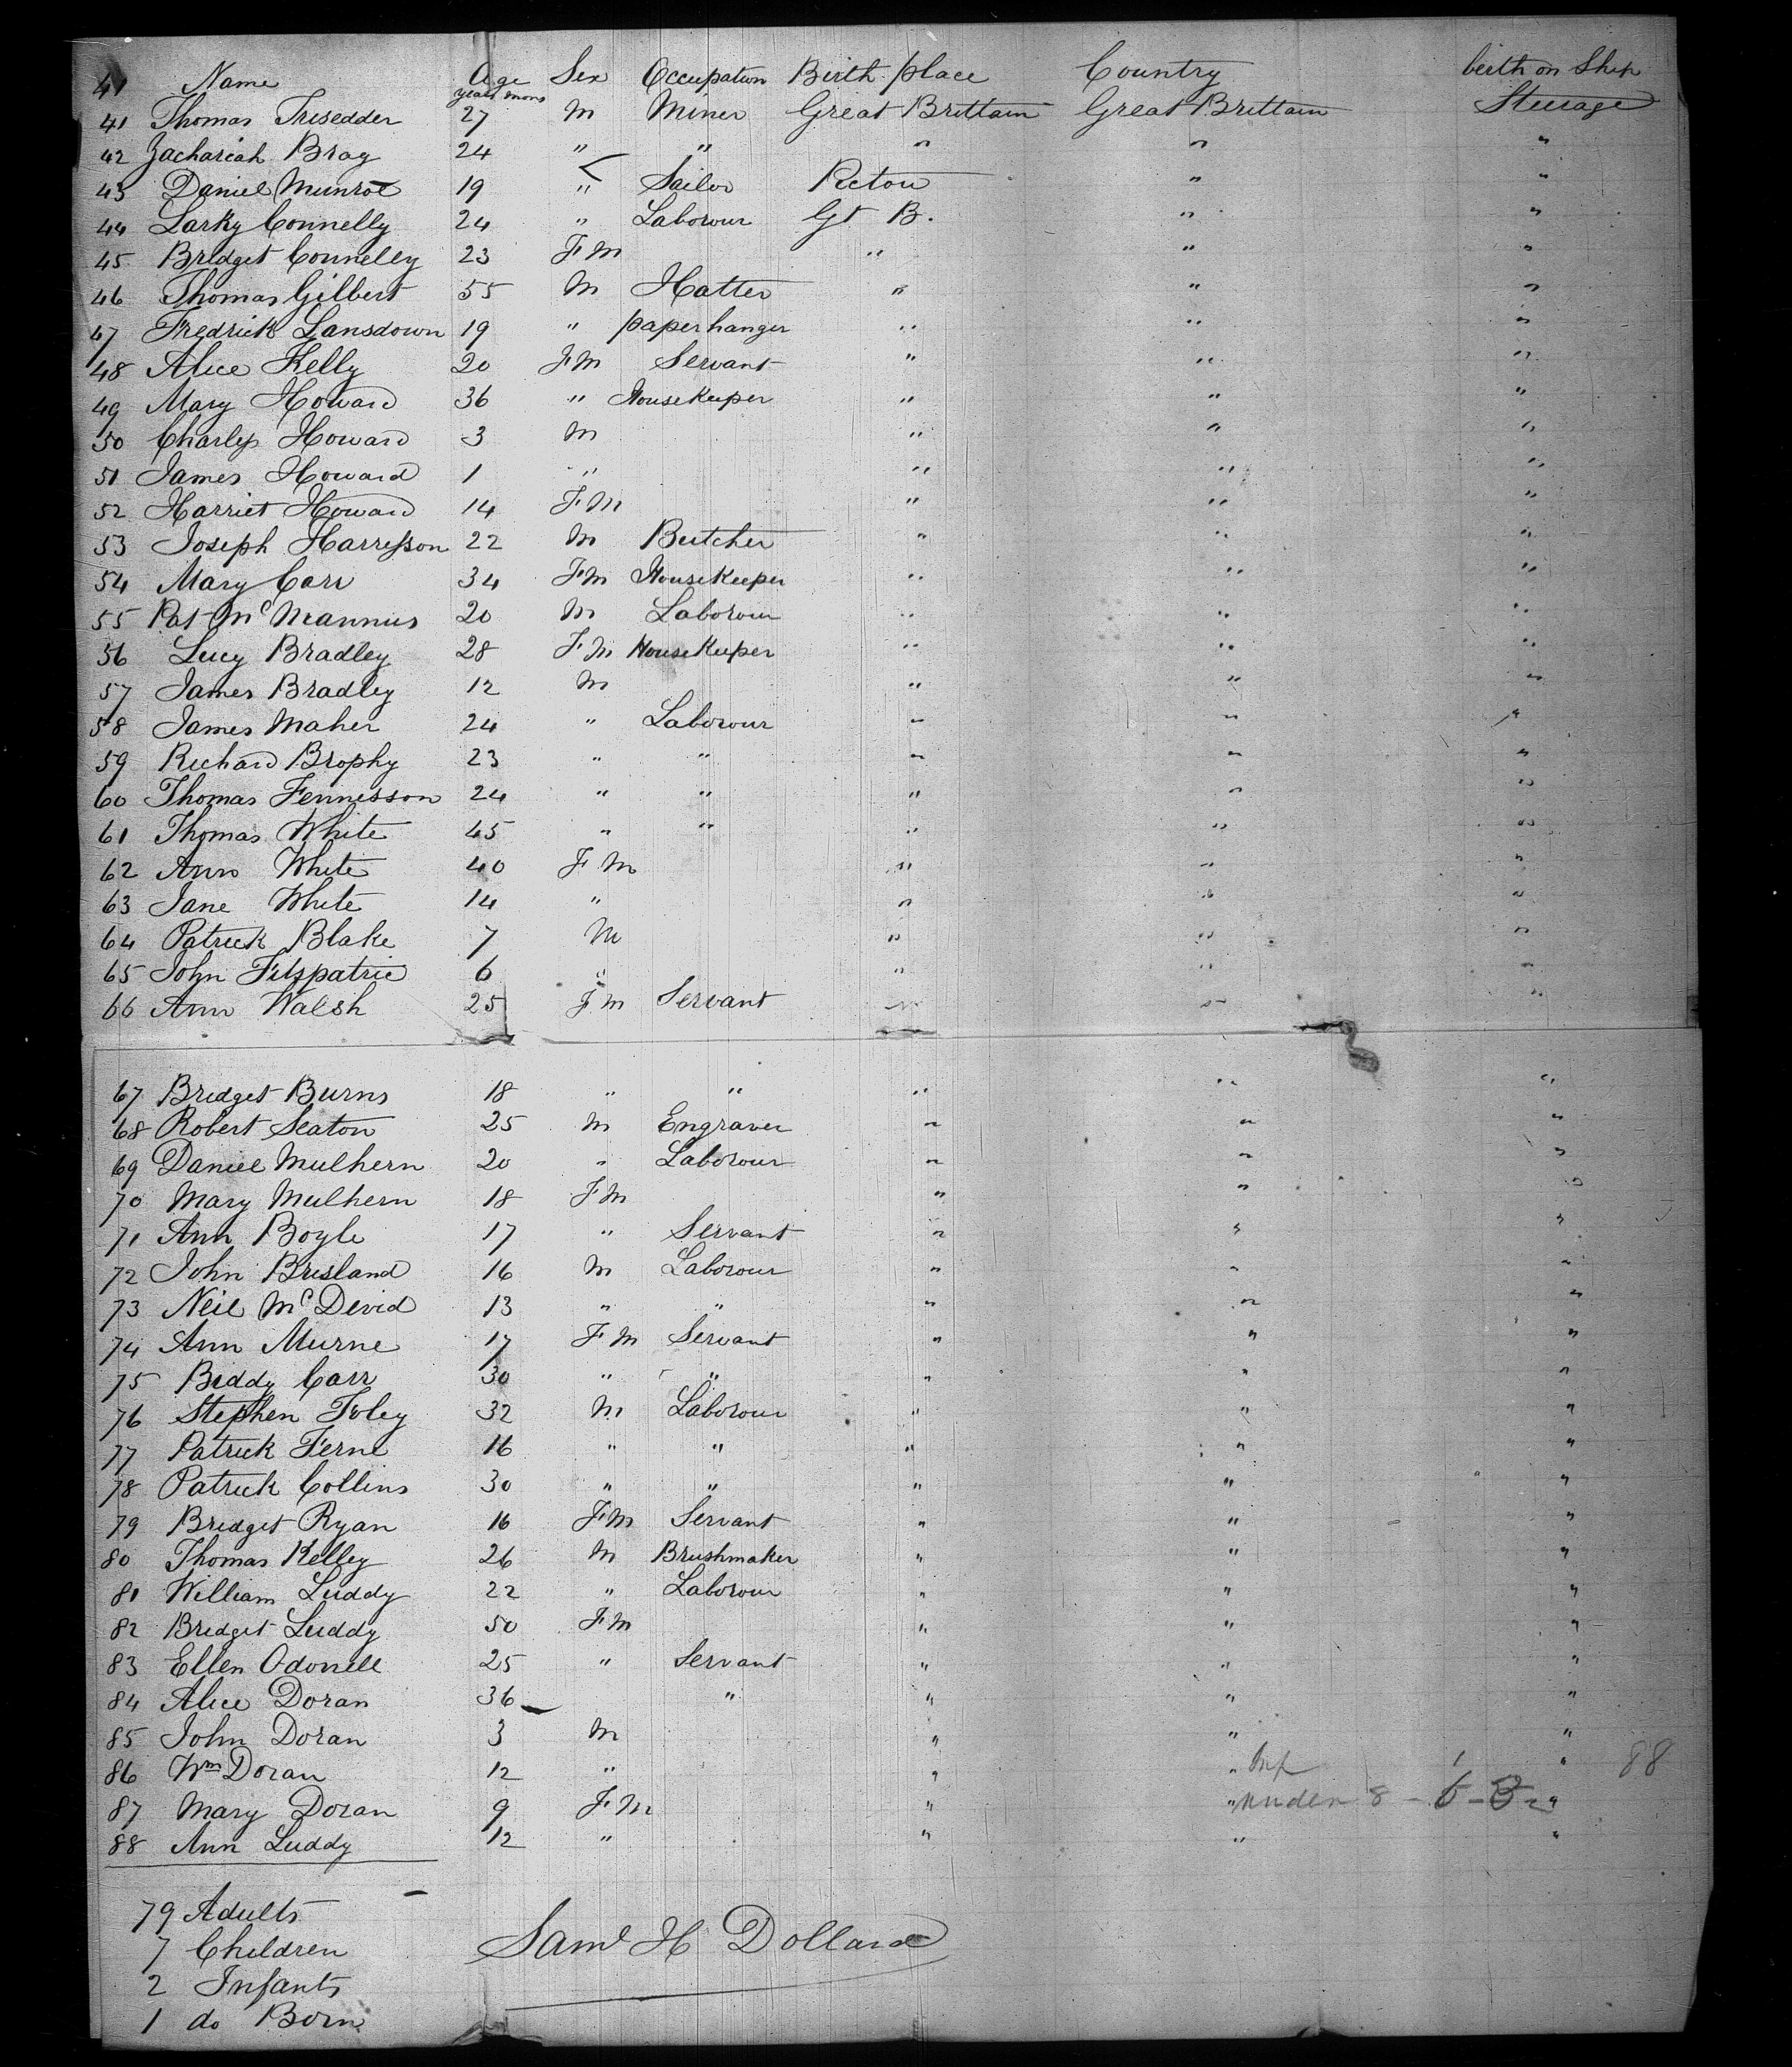 41 Name Age Sex Occupation Birth place Country berth on Ship
years mons
41 Thomas Trisedder 27 M Miner Great Brittain Great Brittain Steerage
42 Zachariah Bray 24 " " " " "
43 Daniel Munroe 19 " Sailor Pictou " "
44 Larky Connelly 24 " Laborour Gt B. " "
45 Bridget Connelly 23 F M " " "
46 Thomas Gilbert 55 M Hatter " " "
47 Fredrick Lansdown 19 " paperhanger " " "
48 Alice Kelly 20 F M Servant " " "
49 Mary Howard 36 " HouseKeeper " " "
50 Charles Howard 3 M " " "
51 James Howard 1 " " " "
52 Harriet Howard 14 F M " " "
53 Joseph Harrisson 22 M Butcher " " "
54 Mary Carr 34 F M HouseKeeper " " "
55 Pat McMannus 20 M Laborour " " "
56 Lucy Bradley 28 F M HouseKeeper " " "
57 James Bradley 12 M " " "
58 James Maher 24 " Laborour " " "
59 Richard Brophy 23 " " " " "
60 Thomas Fennisson 24 " " " " "
61 Thomas White 45 " " " " "
62 Ann White 40 F M " " "
63 Jane White 14 " " " "
64 Patrick Blake 7 M " " "
65 John Fitspatric 6 " " " "
66 Ann Walsh 25 F M Servant " " "
67 Bridget Burns 18 " " " " "
68 Robert Seaton 25 M Engraver " " "
69 Daniel Mulhern 20 " Laborour " " "
70 Mary Mulhern 18 F M " " "
71 Ann Boyle 17 " Servant " " "
72 John Brisland 16 M Laborour " " "
73 Neil McDevid 13 " " " " "
74 Ann Murne 17 F M Servant " " "
75 Biddy Carr 30 " " " " "
76 Stephen Foley 32 M Laborour " " "
77 Patrick Ferne 16 " " " " "
78 Patrick Collins 30 " " " " "
79 Bridget Ryan 16 F M Servant " " "
80 Thomas Kelley 26 M Brushmaker " " "
81 William Luddy 22 " Laborour " " "
82 Bridget Luddy 50 F M " " "
83 Ellen Odonell 25 " Servant " " "
84 Alice Doran 36 " " " "
85 John Doran 3 M " " "
86 Wm Doran 12 " " " Inf 1 " 88
87 Mary Doran 9 F M " " under 8 - 6 "
88 Ann Luddy 12 " " " "
79 Adults
7 Children Saml H Dollard
2 Infants
1 do Born